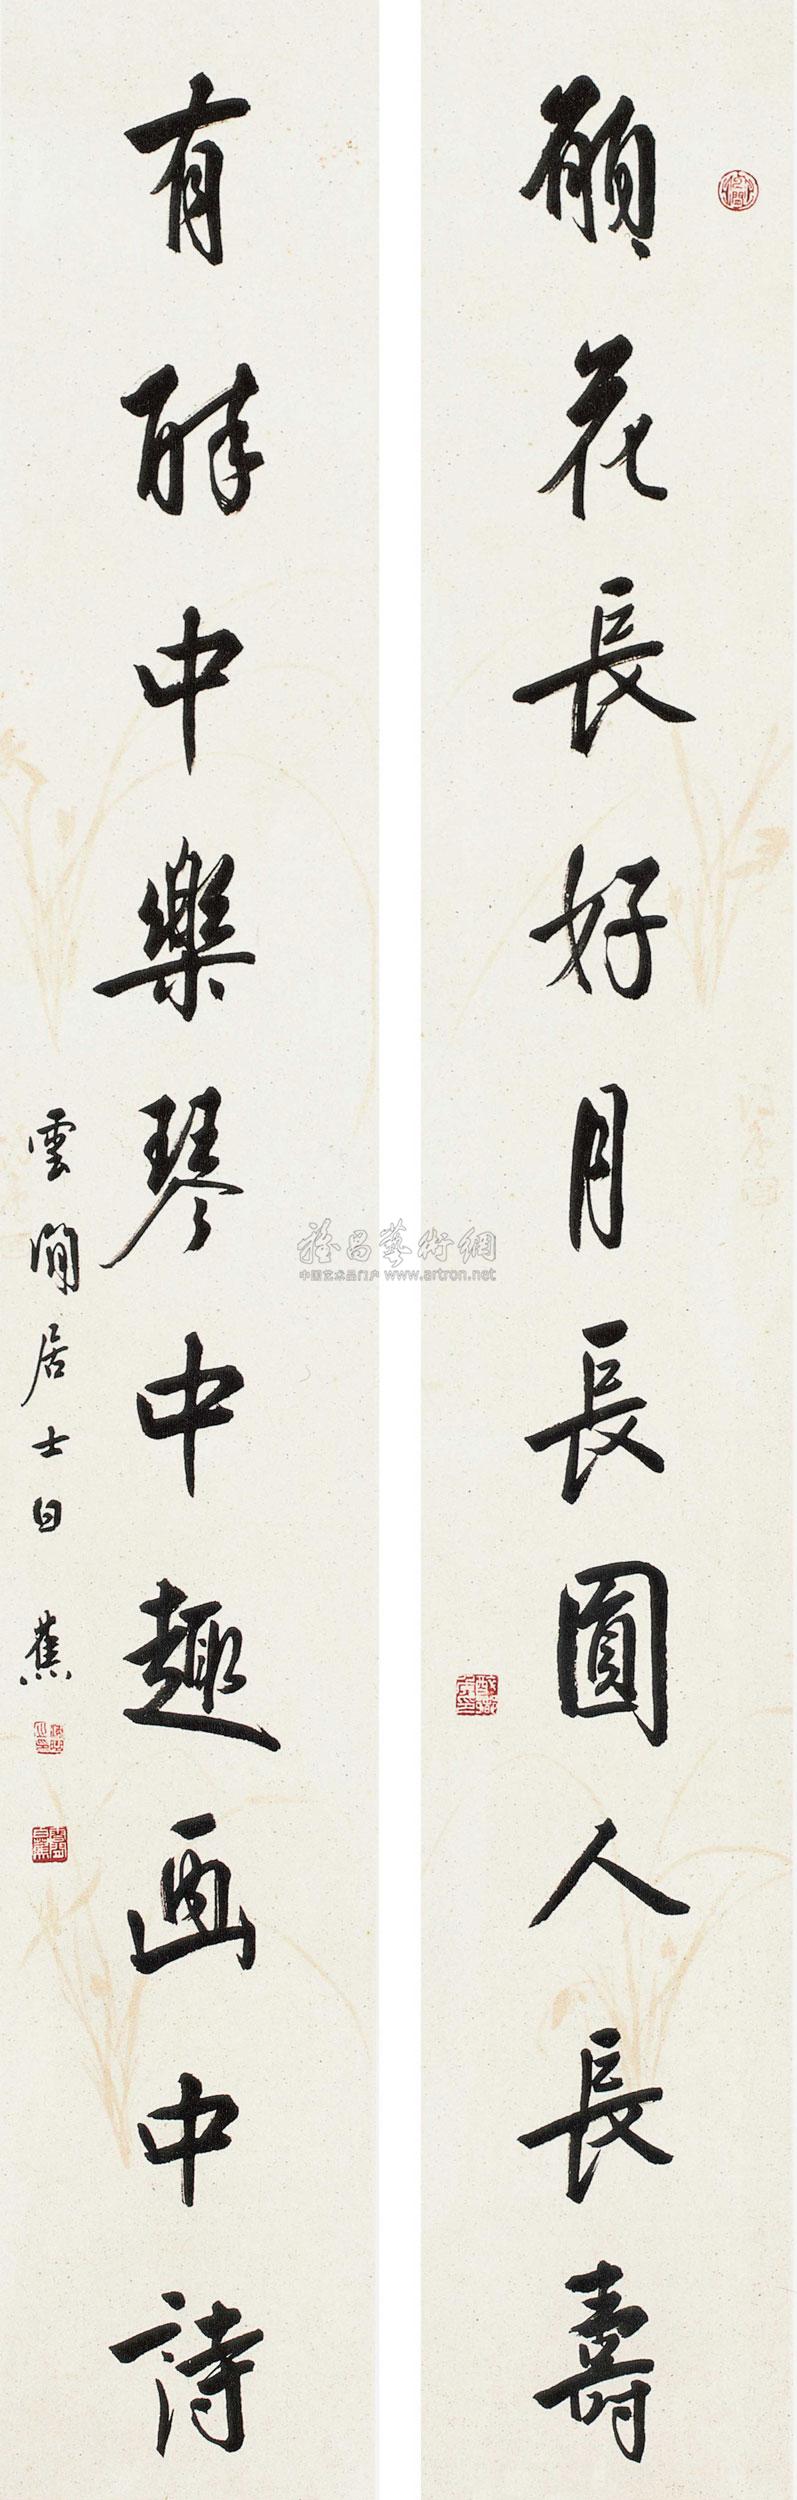 願花長好月長圓人長壽
有醉中樂琴中趣画中詩
雲間居士白蕉
雅昌藝術網
中国艺术品门户 www.artron.net